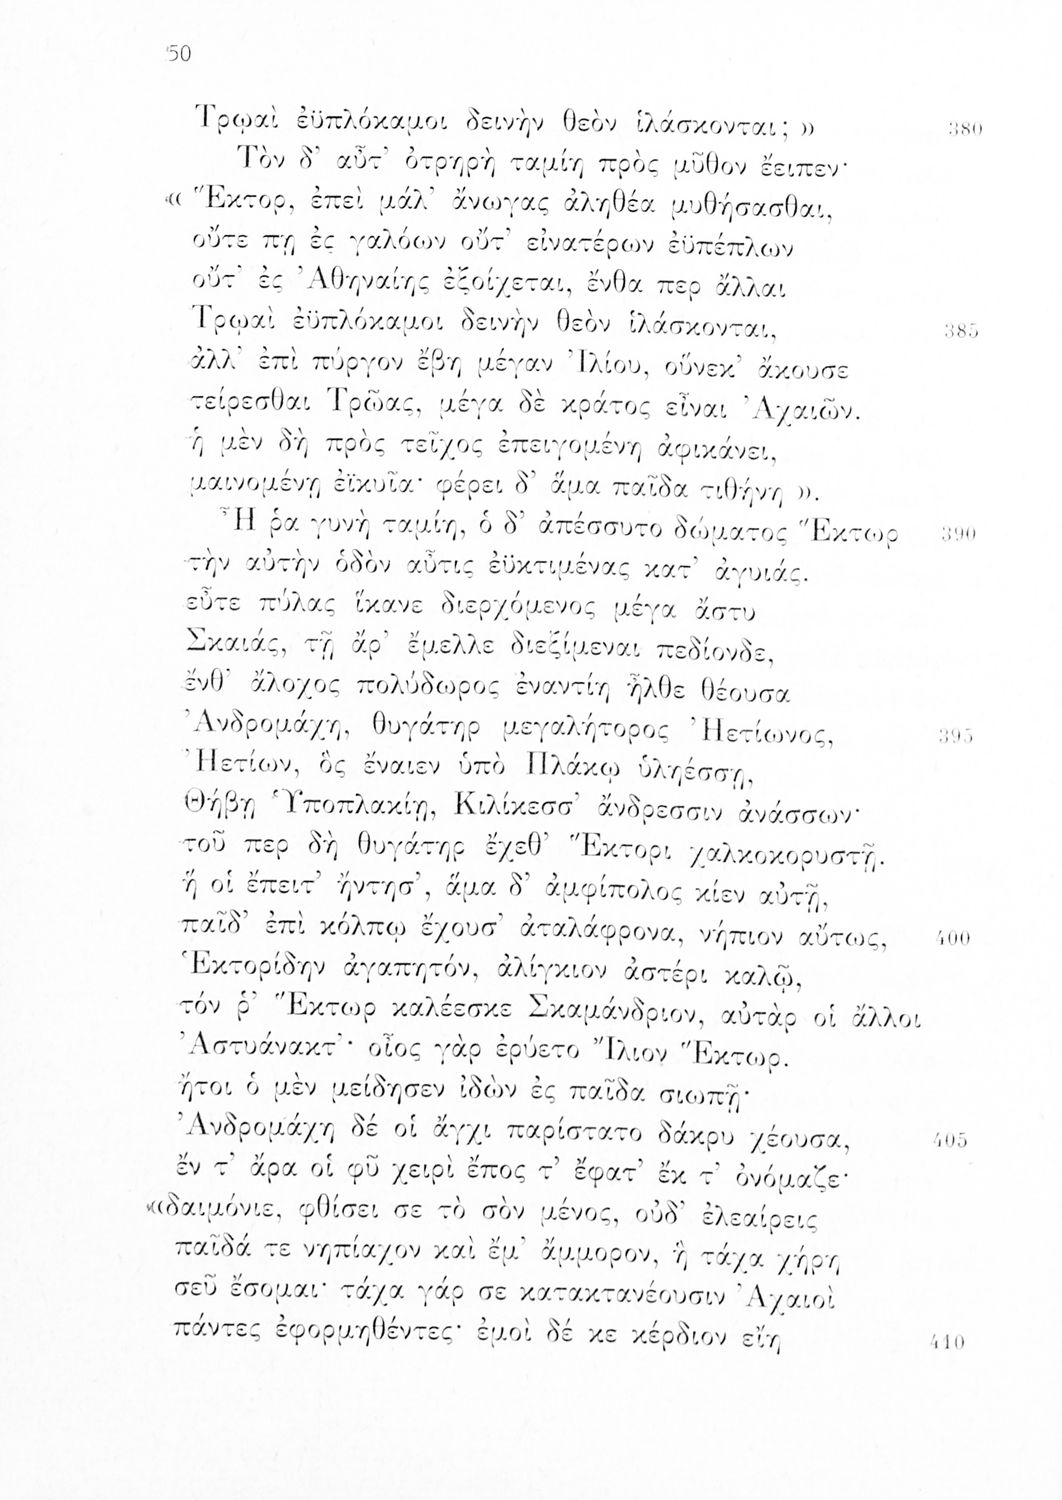 50
Τρῳαὶ ἐϋπλόκαμοι δεινὴν θεὸν ἱλάσκονται; » 380
Τὸν δ’ αὖτ’ ὀτρηρὴ ταμίη πρὸς μῦθον ἔειπεν·
« Ἕκτορ, ἐπεὶ μάλ’ ἄνωγας ἀληθέα μυθήσασθαι,
οὔτε πῃ ἐς γαλόων οὔτ’ εἰνατέρων ἐϋπέπλων
οὔτ’ ἐς Ἀθηναίης ἐξοίχεται, ἔνθα περ ἄλλαι
Τρῳαὶ ἐϋπλόκαμοι δεινὴν θεὸν ἱλάσκονται, 385
ἀλλ’ ἐπὶ πύργον ἔβη μέγαν Ἰλίου, οὕνεκ’ ἄκουσε
τείρεσθαι Τρῶας, μέγα δὲ κράτος εἶναι Ἀχαιῶν.
ἡ μὲν δὴ πρὸς τεῖχος ἐπειγομένη ἀφικάνει,
μαινομένῃ ἐϊκυῖα· φέρει δ’ ἅμα παῖδα τιθήνη ».
Ἦ ῥα γυνὴ ταμίη, ὁ δ’ ἀπέσσυτο δώματος Ἕκτωρ 390
τὴν αὐτὴν ὁδὸν αὖτις ἐϋκτιμένας κατ’ ἀγυιάς.
εὖτε πύλας ἵκανε διερχόμενος μέγα ἄστυ
Σκαιάς, τῇ ἄρ’ ἔμελλε διεξίμεναι πεδίονδε,
ἔνθ’ ἄλοχος πολύδωρος ἐναντίη ἦλθε θέουσα
Ἀνδρομάχη, θυγάτηρ μεγαλήτορος Ἠετίωνος, 395
Ἠετίων, ὃς ἔναιεν ὑπὸ Πλάκῳ ὑληέσσῃ,
Θήβῃ Ὑποπλακίῃ, Κιλίκεσσ’ ἄνδρεσσιν ἀνάσσων·
τοῦ περ δὴ θυγάτηρ ἔχεθ’ Ἕκτορι χαλκοκορυστῇ.
ἥ οἱ ἔπειτ’ ἤντησ’, ἅμα δ’ ἀμφίπολος κίεν αὐτῇ,
παῖδ’ ἐπὶ κόλπῳ ἔχουσ’ ἀταλάφρονα, νήπιον αὔτως, 400
Ἑκτορίδην ἀγαπητόν, ἀλίγκιον ἀστέρι καλῷ,
τόν ῥ’ Ἕκτωρ καλέεσκε Σκαμάνδριον, αὐτὰρ οἱ ἄλλοι
Ἀστυάνακτ’· οἶος γὰρ ἐρύετο Ἴλιον Ἕκτωρ.
ἤτοι ὁ μὲν μείδησεν ἰδὼν ἐς παῖδα σιωπῇ·
Ἀνδρομάχη δέ οἱ ἄγχι παρίστατο δάκρυ χέουσα, 405
ἔν τ’ ἄρα οἱ φῦ χειρὶ ἔπος τ’ ἔφατ’ ἔκ τ’ ὀνόμαζε·
«δαιμόνιε, φθίσει σε τὸ σὸν μένος, οὐδ’ ἐλεαίρεις
παῖδά τε νηπίαχον καὶ ἔμ’ ἄμμορον, ἣ τάχα χήρη
σεῦ ἔσομαι· τάχα γάρ σε κατακτανέουσιν Ἀχαιοὶ
πάντες ἐφορμηθέντες· ἐμοὶ δέ κε κέρδιον εἴη 410